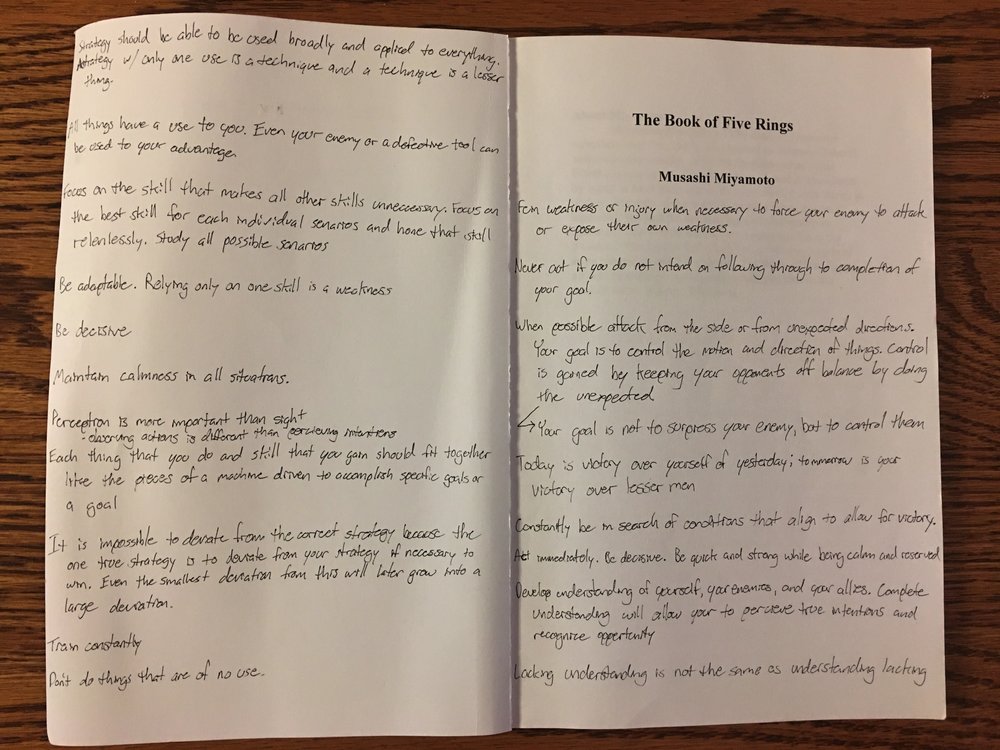 Strategy should be able to be used broadly and applied to everything.
Strategy w/ only one use is a technique and a technique is a lesser
thing.
All things have a use to you. Even your enemy or a defective tool can
be used to your advantage.
Focus on the skill that makes all other skills unneccessary. Focus on
the best skill for each individual senarios and hone that skill
relenlessly. Study all possible senarios
Be adaptable. Relying only on one skill is a weakness
Be decisive
Maintain calmness in all situations.
Perception is more important than sight
- observing actions is different than percieving intentions
Each thing that you do and skill that you gain should fit together
like the pieces of a machine driven to accomplish specific goals or
a goal
It is impossible to deviate from the correct strategy because the
one true strategy is to deviate from your strategy if necessary to
win. Even the smallest deviation from this will later grow into a
large deviation.
Train constantly
Don't do things that are of no use.
The Book of Five Rings
Musashi Miyamoto
Fein weakness or injury when necessary to force your enemy to attack
or expose their own weakness.
Never act if you do not intend on following through to completion of
your goal.
When possible attack from the side or from unexpected directions.
Your goal is to control the motion and direction of things. Control
is gained by keeping your opponents off balance by doing
the unexpected
↳ Your goal is not to surpress your enemy, but to control them
Today is victory over yourself of yesterday; tommorrow is your
victory over lesser men
Constantly be in search of conditions that align to allow for victory.
Act immediately. Be decisive. Be quick and strong while being calm and reserved
Develop understanding of yourself, your enemies, and your allies. Complete
understanding will allow your to percieve true intentions and
recognize opportunity
Lacking understanding is not the same as understanding lacking